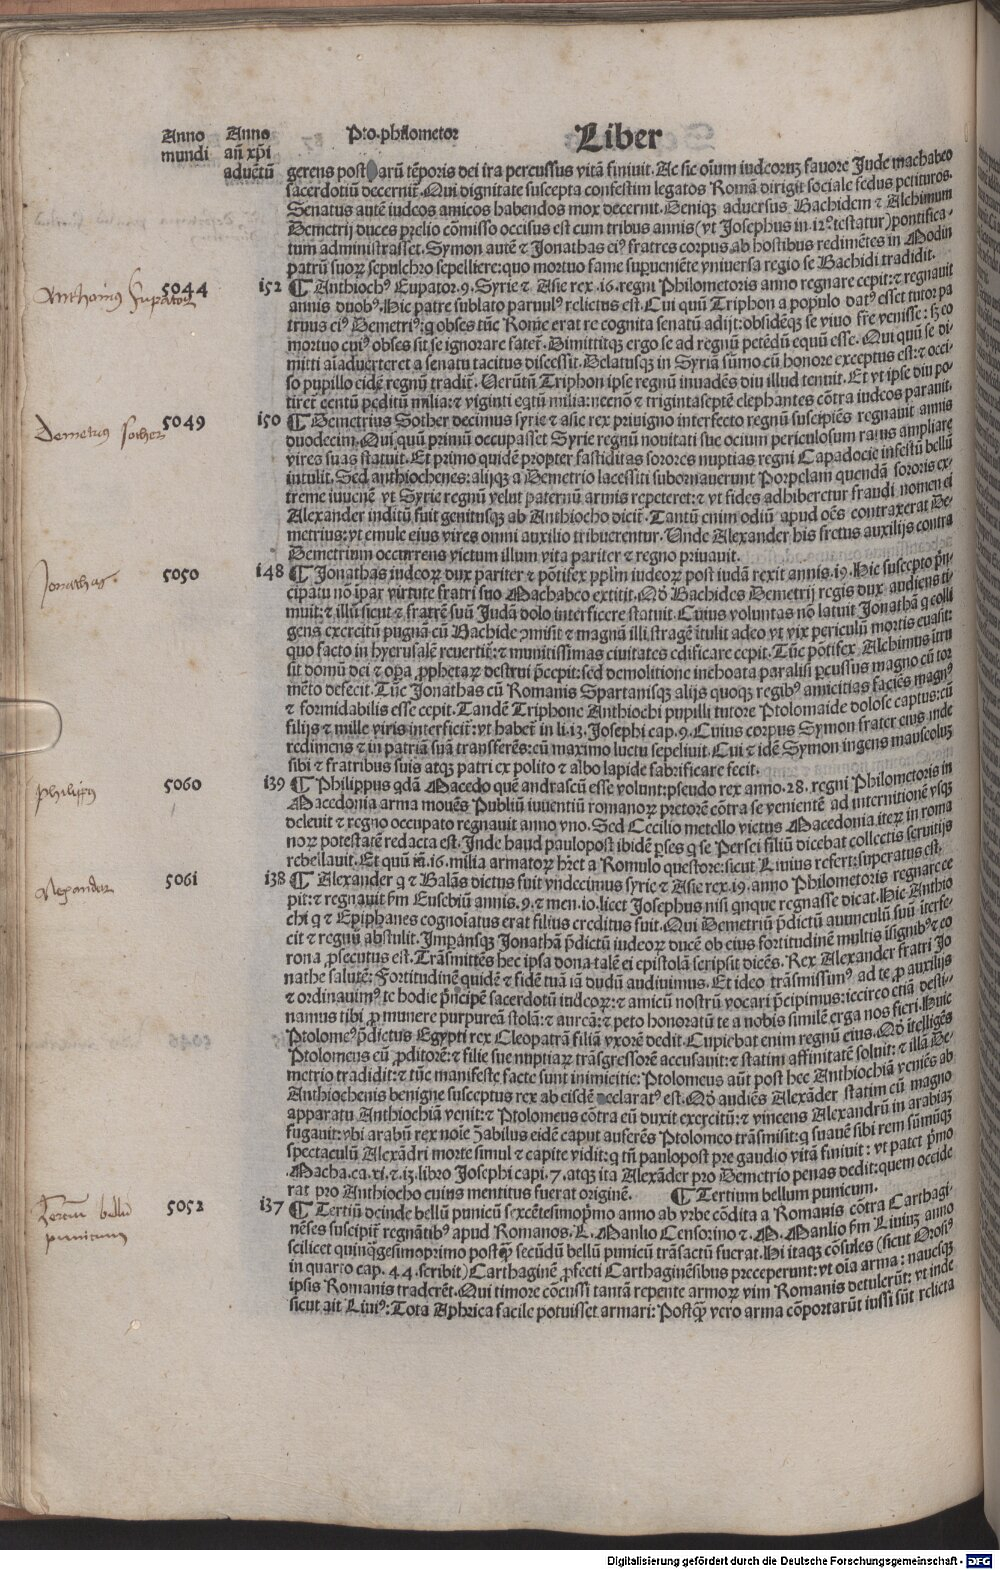 Anno Anno Pto. philometor Liber
mundi añ xp̄i
aduētū
gerens post arū tēporis dei ira percussus vitā finiuit. Ac sic oīum iudeorūꝫ fauore Jude machabeo
sacerdotiū decernit̄. Qui dignitate suscepta confestim legatos Romā dirigit sociale fedus petituros.
Senatus autē iudeos amicos habendos mox decernit. Deniqꝫ aduersus Bachidem ⁊ Alchimum
Demetrij duces prelio cōmisso occisus est cum tribus annis (vt Josephus in .12°. testatur) pontifica-
tum administrasset. Symon autē ⁊ Jonathas eiꝰ fratres corpus ab hostibus redimētes in Modin
patrū suoꝝ sepulchro sepelliere: quo mortuo fame supueniēte vniuersa regio se Bachidi tradidit.
Anthoinus Eupator 5044 152 ¶ Anthiochꝰ Eupator .9. Syrie ⁊ Asie rex .16. regni Philometoris anno regnare cepit: ⁊ regnauit
annis duobꝰ. Hic patre sublato paruulꝰ relictus est. Cui quū Triphon a populo datꝰ esset tutor pa
truus eiꝰ Demetriꝰ: q̄ obses tūc Rome erat re cognita senatū adijt: obsidēqꝫ se viuo fr̄e venisse: sꝫ eo
mortuo cuiꝰ obses sit se ignorare fatet̄. Dimittitqꝫ ergo se ad regnū petēdū equū esse. Qui quū se di-
mitti aīaduerteret a senatu tacitus discessit. Delatusqꝫ in Syriā sūmo cū honore exceptus est: ⁊ occi-
so pupillo eidē regnū tradit̄. Uerūtū Triphon ipse regnū inuadēs diu illud tenuit. Et vt ipse diu po-
tiret̄ centū peditū milia: ⁊ viginti eqtū milia: necnō ⁊ trigintaseptē elephantes cōtra iudeos parauit.
Demetrius sother 5049 150 ¶ Demetrius Sother decimus syrie ⁊ asie rex priuigno interfecto regnū suscipiēs regnauit annis
duodecim. Qui quū primū occupasset Syrie regnū nouitati sue ocium periculosum ratus ampliare
vires suas statuit. Et primo quidē propter fastiditas sorores nuptias regni Capadocie infestū bellū
intulit. Sed anthiochenes: alijqꝫ a Demetrio lacessiti subornauerunt Porpelam quendā sororis ex-
treme iuuenē vt Syrie regnū velut paternū armis repeteret: ⁊ vt fides adhiberetur fraudi nomen ei
Alexander inditū fuit genitusqꝫ ab Anthiocho dicit̄. Tantū enim odiū apud oēs contraxerat De-
metrius: vt emule eius vires omni auxilio tribuerentur. Unde Alexander his fretus auxilijs contra
Demetrium occurrens victum illum vita pariter ⁊ regno priuauit.
Jonathas. 5050 148 ¶ Jonathas iudeoꝝ dux pariter ⁊ pōtifex pplm̄ iudeoꝝ post iudā rexit annis .19. Hic suscepto p̄n-
cipatu nō ipar virtute fratri suo Machabeo extitit. Qd̄ Bachides Demetrij regis dux audiens ti-
muit: ⁊ illū sicut ⁊ fratrē suū Judā dolo interficere statuit. Cuius voluntas nō latuit Jonathā q̄ colli
gens exercitū pugnā cū Bachide ↄmisit̄ ⁊ magnā illi stragē itulit adeo vt vix periculū mortis euasit:
quo facto in hyerusalē reuertit̄: ⁊ munitissimas ciuitates edificare cepit. Tūc pōtifex Alchimus itru
sit domū dei ⁊ opa prophetaꝝ destrui p̄cepit: sed demolitione inchoata paralisi pcussus magno cū tor
mēto defecit. Tūc Jonathas cū Romanis Spartanisqꝫ alijs quoqꝫ regibꝰ amicitias faciēs magnꝰ
⁊ formidabilis esse cepit. Tandē Triphone Anthiochi pupilli tutore Ptolomaide dolose captus: cū
filijs ⁊ mille viris interficit̄: vt habet̄ in li. 13. Josephi cap. 9. Cuius corpus Symon frater eius inde
redimens ⁊ in patriā suā transferēs: cū maximo luctu sepeliuit. Cui ⁊ idē Symon ingens mausoleuꝫ
sibi ⁊ fratribus suis atqꝫ patri ex polito ⁊ albo lapide fabrificare fecit.
Philippꝰ 5060 139 ¶ Philippus qdā Macedo quē andrascū esse volunt: pseudo rex anno .28. regni Philometoris in
Macedonia arma mouēs Publiū iuuentiū romanoꝝ pretorē cōtra se venientē ad internitionē vsqꝫ
deleuit ⁊ regno occupato regnauit anno vno. Sed Cecilio metello victus Macedonia iteꝝ in roma
noꝝ potestatē redacta est. Inde haud paulopost ibidē pses q̄ se Persei filiū dicebat collectis seruitijs
rebellauit. Et quū iā .16. milia armatoꝝ hr̄et a Romulo questore: sicut Liuius refert: superatus est.
Alexander 5061 138 ¶ Alexander q̄ ⁊ Balās dictus fuit vndecimus syrie ⁊ Asie rex .19. anno Philometoris regnare ce
pit: ⁊ regnauit f̄m Eusebiū annis .9. ⁊ men. 10. licet Josephus nisi qnque regnasse dicat. Hic Anthio
chi q̄ ⁊ Epiphanes cognoīatus erat filius creditus fuit. Qui Demetriū p̄dictū auunculū suū iterfe-
cit ⁊ regnū abstulit. Impansqꝫ Jonathā p̄dictū iudeoꝝ ducē ob eius fortitudinē multis isignibꝰ ⁊ co
rona ꝓsecutus est. Trāsmittēs hec ipsa dona talē ei epistolā scripsit dicēs. Rex Alexander fratri Jo
nathe salutē: Fortitudinē quidē ⁊ fidē tuā iā dudū audiuimus. Et ideo trāsmissimꝰ ad te ꝓ auxilijs
⁊ ordinauimꝰ te hodie p̄ncipē sacerdotū iudeoꝝ: ⁊ amicū nostrū vocari p̄cipimus: iccirco etiā desti-
namus tibi ꝓ munere purpureā stolā: ⁊ aureā: ⁊ peto honoratū te a nobis similē erga nos fieri. Huic
Ptolomeꝰ p̄dictus Egypti rex Cleopatrā filiā vxorē dedit. Cupiebat enim regnū eius. Qd̄ itelligēs
Ptolomeus eū ꝓditorē: ⁊ filie sue nuptiaꝝ trāsgressorē accusauit: ⁊ statim affinitatē soluit: ⁊ illā De-
metrio tradidit: ⁊ tūc manifeste facte sunt inimicitie: Ptolomeus aūt post hec Anthiochiā veniēs ab
Anthiochenis benigne susceptus rex ab eisdē declaratꝰ est. Qd̄ audiēs Alexāder statim cū magno
apparatu Anthiochiā venit: ⁊ Ptolomeus cōtra eū duxit exercitū: ⁊ vincens Alexandrū in arabiaꝫ
fugauit: vbi arabū rex noīe Zabilus eidē caput auferēs Ptolomeo trāsmisit: q̄ suauē sibi rem sūmūqꝫ
spectaculū Alexādri morte simul ⁊ capite vidit: q̄ tn̄ paulopost pre gaudio vitā finiuit: vt patet pmo
Macha. ca. xi. ⁊ 13. libro Josephi capi. 7. atqꝫ ita Alexāder pro Demetrio penas dedit: quem occide
rat pro Anthiocho cuius mentitus fuerat originē. ¶ Tertium bellum punicum.
Tertiū bellū punicum 5052 137 ¶ Tertiū deinde bellū punicū sexcētesimopmo anno ab vrbe cōdita a Romanis cōtra Carthagi-
nēses suscipit̄ regnātibꝰ apud Romanos. L. Manlio Censorino ⁊ M. Manlio f̄m Liuiuꝫ anno
scilicet quinq̄gesimoprimo postq̄ꝫ secūdū bellū punicū trāsactū fuerat. Hi itaqꝫ cōsules (sicut Orosiꝰ
in quarto cap. 44. scribit) Carthaginē ꝓfecti Carthaginēsibus preceperunt: vt oīa arma: nauesqꝫ
ipsis Romanis traderēt. Qui timore cōcussi tantā repente armoꝝ vim Romanis detulerūt: vt inde
sicut ait Liuiꝰ: Tota Aphrica facile potuisset armari: Postq̄ꝫ vero arma cōportarūt iussi sūt relicta
Digitalisierung gefördert durch die Deutsche Forschungsgemeinschaft - DFG